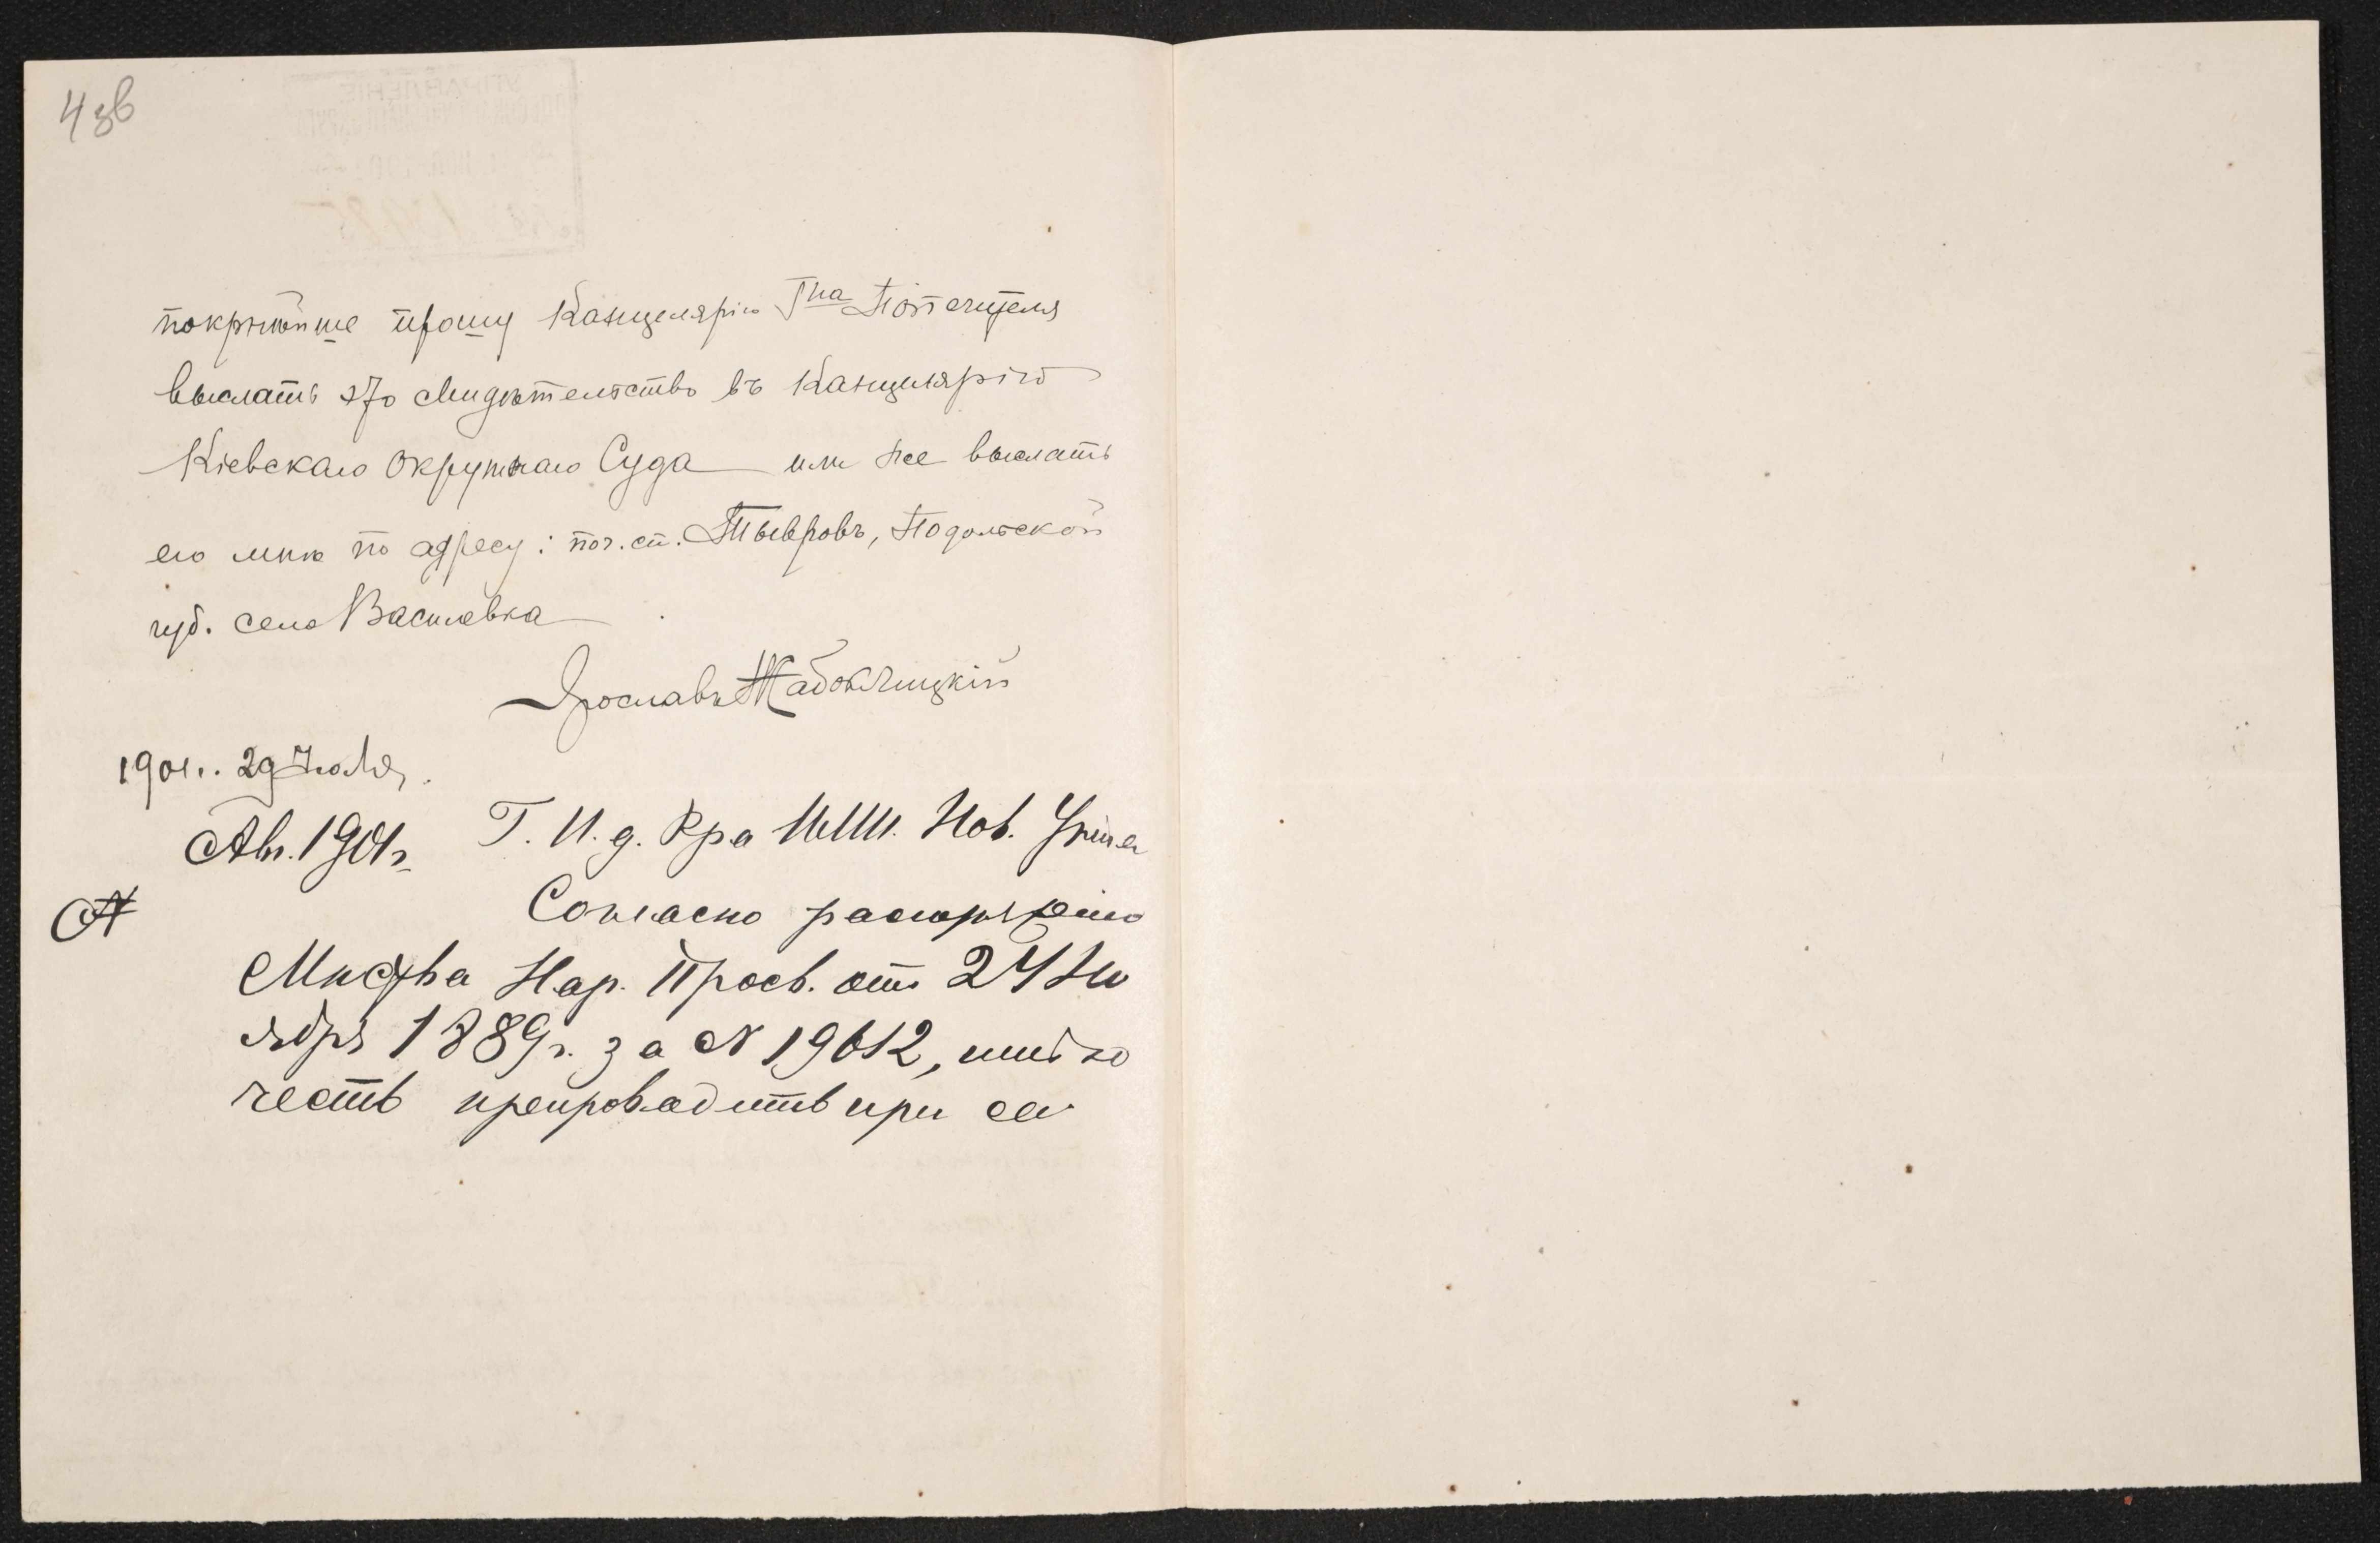 4 зв
покрнѣйше прошу Канцелярію Гна Попечителя
выслать это свидѣтельство въ Канцелярію
Кіевскаго Окружнаго Суда или же выслать
его мнѣ по адресу: поч. ст. Тывровъ, Подольской
губ. село Василевка
Ярославъ Жабоклицкій
1901 г. 29 Іюля.
Авг. 1901 г. Г. И. д. Р-ра ИМП. Нов. Ун-та
Согласно распоряженію
Мин-ства Нар. Просв. отъ 24 Но
ября 1889 г. за № 19612, имѣю
честь препроводить при се